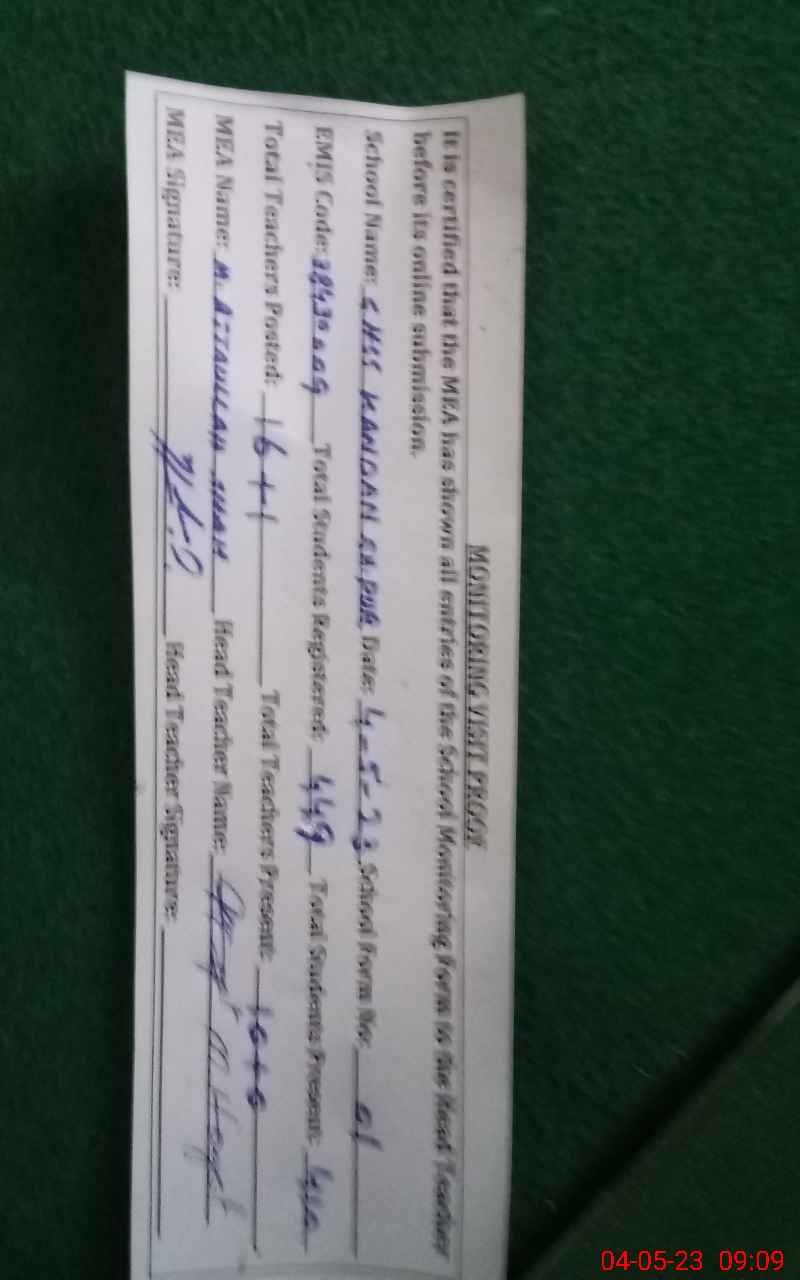 MONITORING VISIT PROOF
It is certified that the MEA has shown all entries of the School Monitoring Form to the Head Teacher
before its online submission.
School Name: GHSS Date: 4-5-23 School Form No: 01
EMIS Code: Total Students Registered: 449 Total Students Present:
Total Teachers Posted: 16+1 Total Teachers Present:
MEA Name: M. ATTAULLAH SHAH Head Teacher Name:
MEA Signature: Head Teacher Signature:
04-05-23 09:09